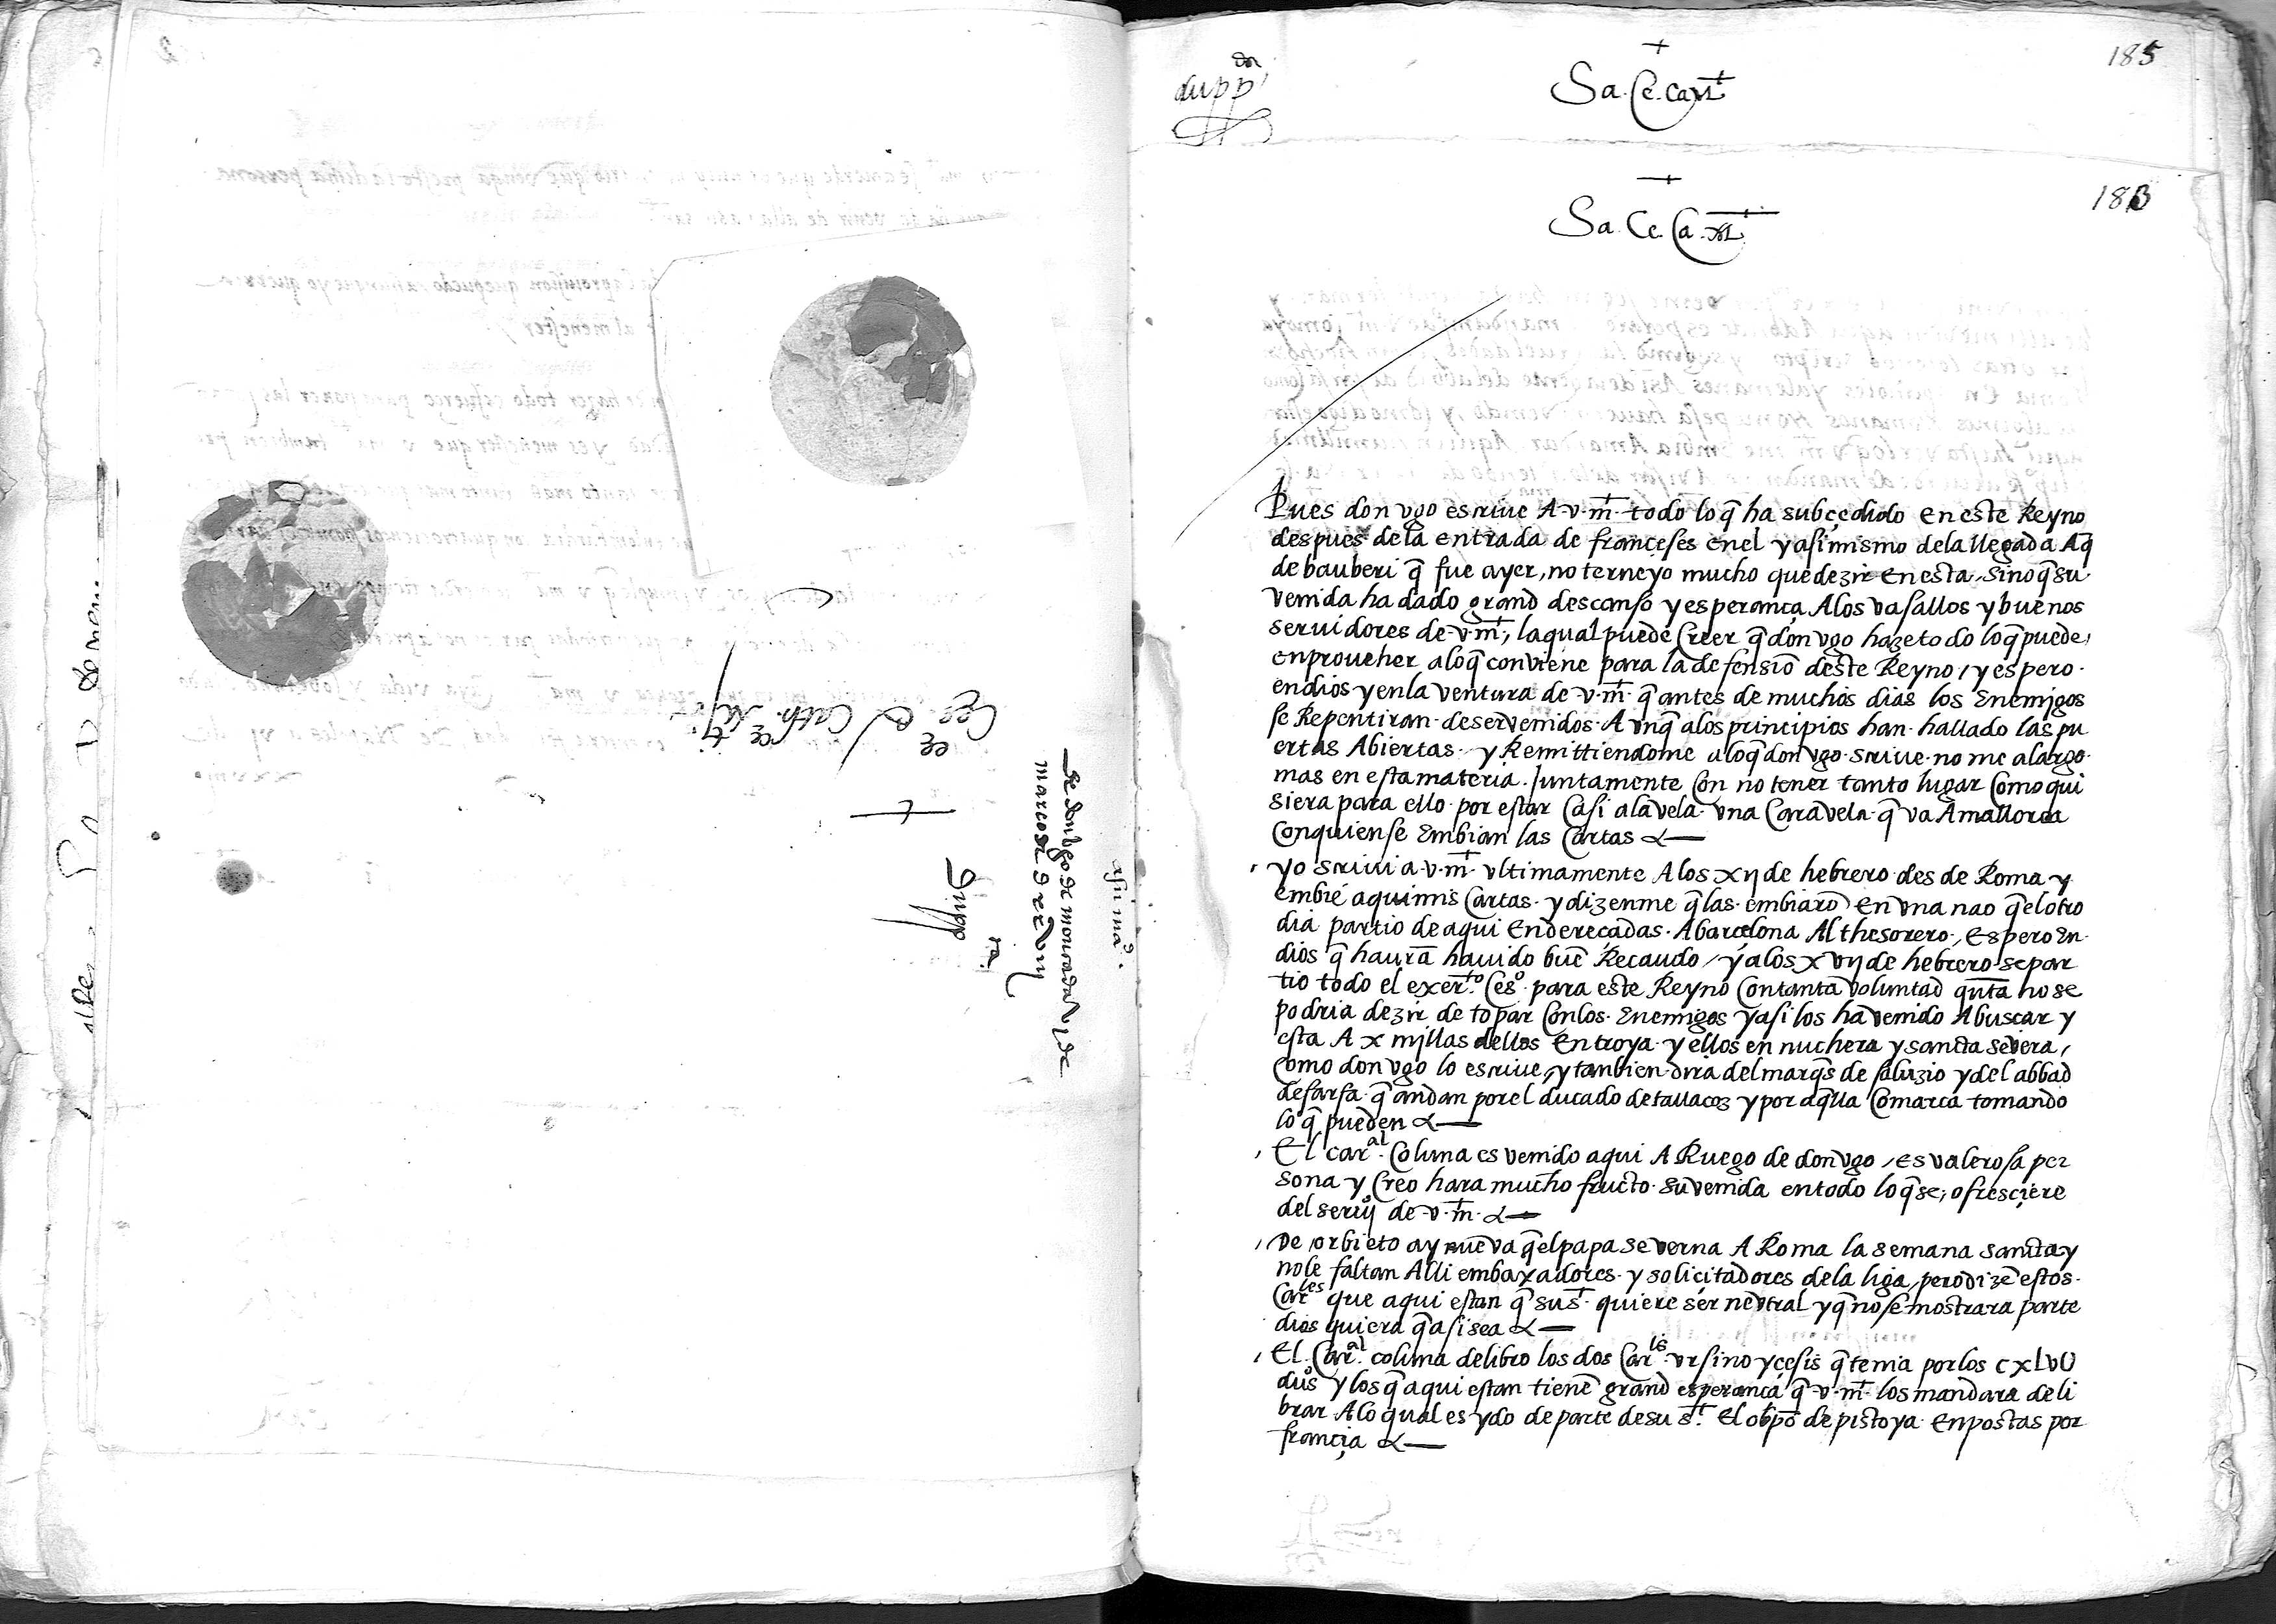 de don Ugo de moncada y de
marco de d xx viij
Dupp.
asi ma.
185
dupp.
+
Sa. Ce. Ca. M.t
+
183
Sa. Ce. Ca. M.t
Pues don vgo escriue A v. m.t todo lo q̃ ha subçedido en este Reyno
despues dela entrada de françeses enel y asimismo dela llegada Aq̃
de bauberi q̃ fue ayer, no terne yo mucho que dezir en esta, sino q̃ su
venida ha dado grand descanso y esperança Alos vasallos y buenos
seruidores de v. m.t, laqual puede Creer q̃ don vgo haze todo lo q̃ puede
en proueher alo q̃ conviene para la defensiõ deste Reyno / y espero
en dios y enla ventura de v. m.t q̃ antes de muchos dias los Enemigos
se Repentiran deser venidos. A vnq̃ alos principios han hallado las pu
ertas Abiertas. y Remittiendome alo q̃ don vgo scriue no me alargo
mas en esta materia. Juntamente Con no tener tanto lugar Como qui
siera para ello por estar Casi ala vela vna Caravela q̃ va A mallorca
Con quien se Embian las Cartas
yo scriui a v. m.t vltimamente Alos xij de hebrero des de Roma y
embié aqui mis Cartas. y dizenme q̃ las embiarõ En vna nao q̃ el otro
dia partio de aqui Endereçadas A barcelona Al thesorero, Espero En
dios q̃ haurã hauido buẽ Recaudo / y alos xvij de hebrero se par
tio todo el exer.to Ces.o para este Reyno Con tanta voluntad qũta no se
podria dezir de topar Con los Enemigos y asi los ha venido A buscar y
esta A x millas dellos En troya y ellos en nuchera y sancta severa,
Como don vgo lo escriue, y tanbien dira del marq̃s de saluzio y del abbad
de farfa q̃ andan por el ducado de tallacoz y por aq̃lla Comarca tomando
lo q̃ pueden
El car.al Coluna es venido aqui A Ruego de don vgo, es valerosa per
sona y Creo hara mucho fructo su venida en todo lo q̃ se ofresçiere
del serui.o de v. m.t
De orbieto ay nueva q̃ el papa se verna A Roma la semana sancta y
no le faltan Alli embaxadores y solicitadores dela liga, pero dizẽ estos
Car.les que aqui estan q̃ su s.t quiere ser neutral y q̃ no se mostrara parte
dios quiera q̃ asi sea
El Car.al coluna delibro los dos Car.les vrsino y cesis q̃ tenia por los
du.os y los q̃ aqui estan tienẽ grand esperança q̃ v. m.t los mandara deli
brar Alo qual es ydo de parte de su s.t El obpõ de pistoya En postas por
francia